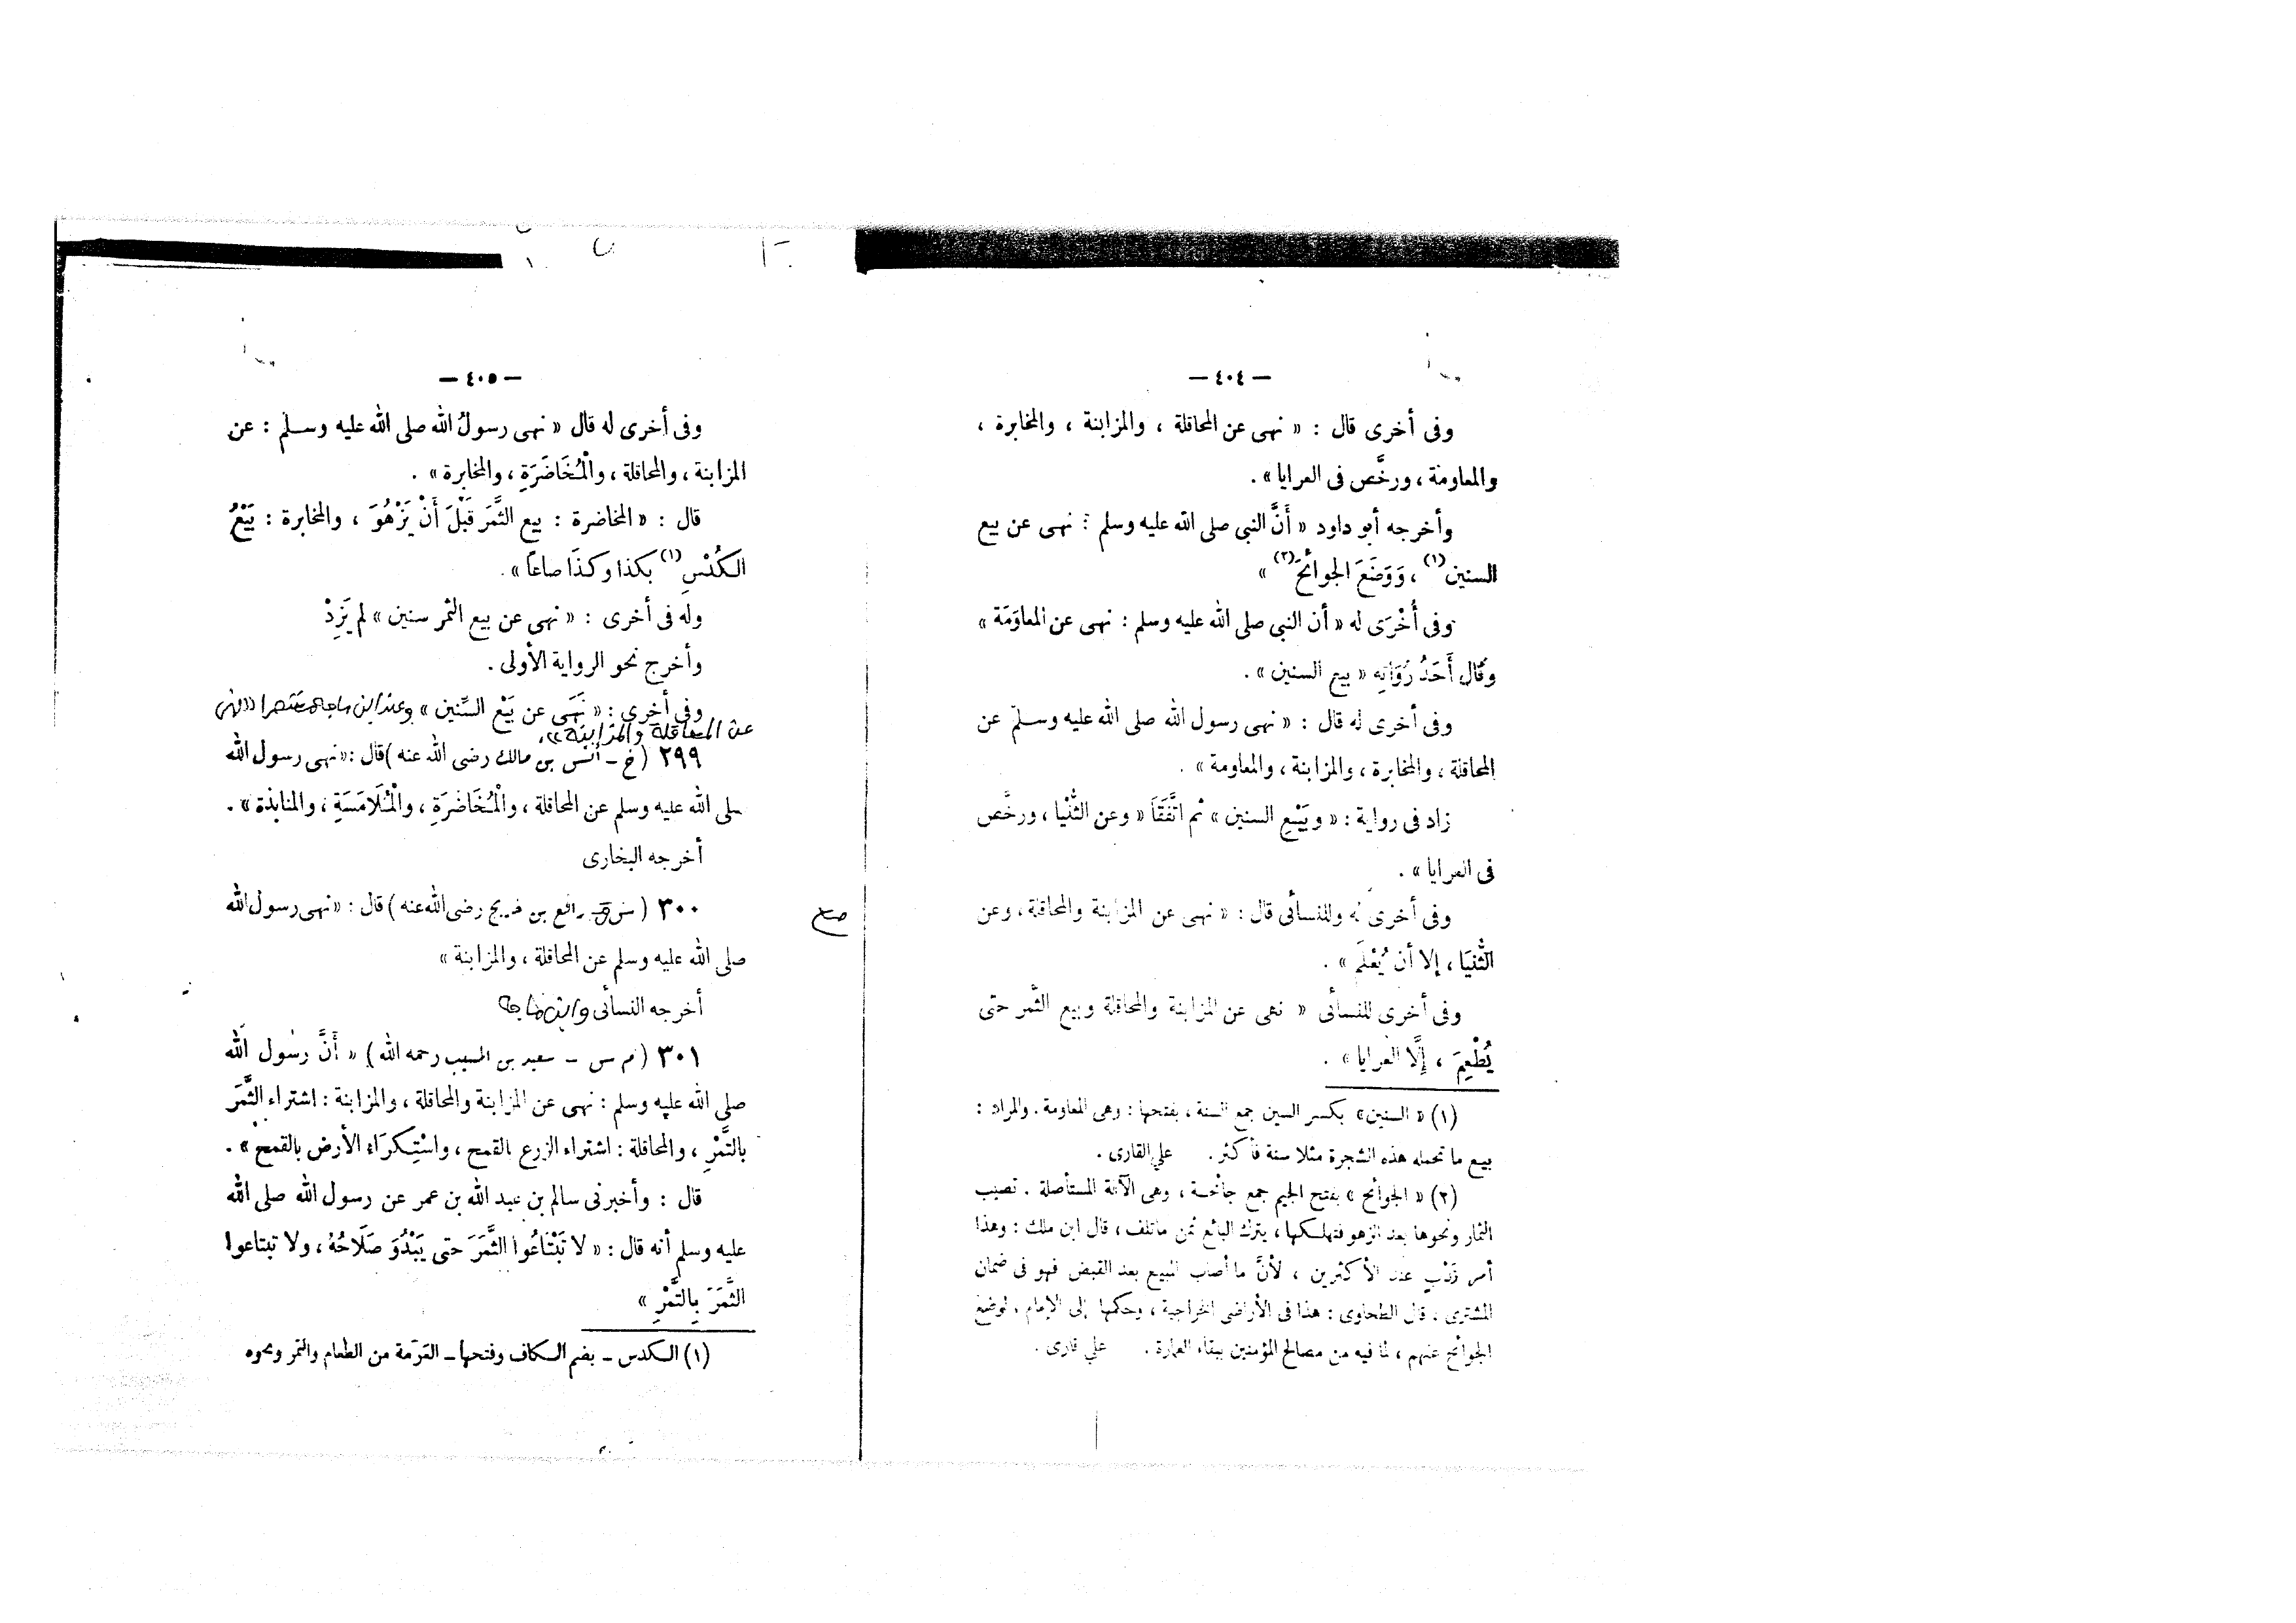 — ٤٠٤ —
وفى أخرى قال : « نهى عن المحاقلة ، والمزابنة ، والمخابرة ،
والمعاومة ، ورخَّص فى العرايا » .
وأخرجه أبو داود « أَنَّ النبى صلى الله عليه وسلم : نهى عن بيع
السنين(١) ، وَوَضَعَ الجوائحَ(٢) »
وفى أُخْرَى له « أن النبى صلى الله عليه وسلم : نهى عن المعاوَمَة »
وقال أَحَدُ رُوَاتِهِ « بيع السنين » .
وفى أخرى له قال : « نهى رسول الله صلى الله عليه وسلم عن
المحاقلة ، والمخابرة ، والمزابنة ، والمعاومة » .
زاد فى رواية : « وبَيْعِ السنين » ثم اتَّفَقَا « وعن الثُّنْيا ، ورخَّص
فى العرايا » .
وفى أخرى له وللنسائى قال : « نهى عن المزابنة والمحاقلة ، وعن
الثُّنْيَا ، إلا أن يُعْلَمَ » .
وفى أخرى للنسائى « نهى عن المزابنة والمحاقلة وبيع الثَّمر حتى
يُطْعِمَ ، إِلَّا العرايا » .
(١) « السنين » بكسر السين جمع السنة ، بفتحها : وهى المعاومة . والمراد :
بيع ما تحمله هذه الشجرة مثلا سنة فأكثر . على القارى .
(٢) « الجوائح » بفتح الجيم جمع جائحة ، وهى الآفة المستأصلة . تصيب
الثمار ونحوها بعد الزهو فتهلكها ، يترك البائع ثمن ماتلف ، قال ابن ملك : وهذا
أمر نَدْبٍ عند الأكثرين ، لأنَّ ما أصاب المبيع بعد القبض فهو فى ضمان
المشترى . قال الطحاوى : هذا فى الأراضى الخراجية ، وحكمها إلى الإمام . لوضع
الجوائح عنهم ، لما فيه من مصالح المؤمنين ببقاء العمارة . على قارى .
— ٤٠٥ —
وفى أخرى له قال « نهى رسولُ الله صلى الله عليه وسلم : عن
المزابنة ، والمحاقلة ، والْمُخَاضَرَةِ ، والمخابرة » .
قال : « المخاضرة : بيع الثَّمَر قَبْلَ أَنْ يَزْهُوَ ، والمخابرة : بَيْعُ
الكُدْسِ(١) بكذا وكذَا صاعاً » .
وله فى أخرى : « نهى عن بيع الثمر سنين » لم يَزِدْ
وأخرج نحو الرواية الأولى .
وفى أخرى : « نَهَى عن بَيْع السِّنين » وعند ابن ماجه مختصرا « نهى
عن المحاقلة والمزابنة » .
٢٩٩ ( خ – أنس بن مالك رضى الله عنه ) قال : « نهى رسول الله
صلى الله عليه وسلم عن المحاقلة ، والْمُخَاضَرَةِ ، والْمُلَامَسَةِ ، والمنابذة » .
أخرجه البخارى
٣٠٠ ( س رافع بن خديج رضى الله عنه ) قال : « نهى رسول الله
صلى الله عليه وسلم عن المحاقلة ، والمزابنة »
أخرجه النسائى وابن ماجه
٣٠١ ( م س – سعيد بن المسيب رحمه الله ) « أَنَّ رسُول الله
صلى الله عليه وسلم : نهى عن المزابنة والمحاقلة ، والمزابنة : اشتراء الثَّمَرَ
بالتَّمْرِ ، والمحاقلة : اشتراء الزرع بالقمح ، واسْتِكرَاء الأرض بالقمح » .
قال : وأخبرنى سالم بن عبد الله بن عمر عن رسول الله صلى الله
عليه وسلم أنه قال : « لا تَبْتَاعُوا الثَّمَرَ حتى يَبْدُوَ صَلَاحُهُ ، ولا تبتاعوا
الثَّمَرَ بِالتَّمْرِ »
(١) الكدس – بضم الكاف وفتحها – العَرَمة من الطعام والتمر ونحوه